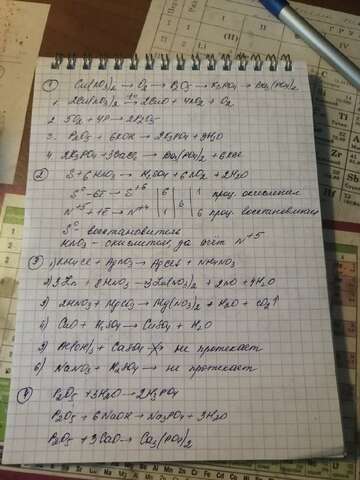 ① Cu(NO3)2 → O2 → P2O5 → K3PO4 → Ba3(PO4)2
1. 2Cu(NO3)2 → 2CuO + 4NO2 + O2
2. 5O2 + 4P → 2P2O5
3. P2O5 + 6KOH → 2K3PO4 + 3H2O
4. 2K3PO4 + 3BaCl2 → Ba3(PO4)2 + 6KCl
② S + 6HNO3 → H2SO4 + 6NO2 + 2H2O
S⁰ - 6ē → S⁺⁶ | 6 | 6 | 1 проц. окисления
N⁺⁵ + 1ē → N⁺⁴ | 1 | | 6 проц. восстановления
S⁰ - восстановитель
HNO3 - окислитель за счёт N⁺⁵
③ 1) NH4Cl + AgNO3 → AgCl↓ + NH4NO3
2) 3Zn + 8HNO3 → 3Zn(NO3)2 + 2NO + 4H2O
3) 2HNO3 + MgCO3 → Mg(NO3)2 + H2O + CO2↑
4) CuO + H2SO4 → CuSO4 + H2O
5) Al(OH)3 + CaSO4 → не протекает
6) NaNO3 + K2SO4 → не протекает
④ P2O5 + 3H2O → 2H3PO4
P2O5 + 6NaOH → Na3PO4 + 3H2O
P2O5 + 3CaO → Ca3(PO4)2